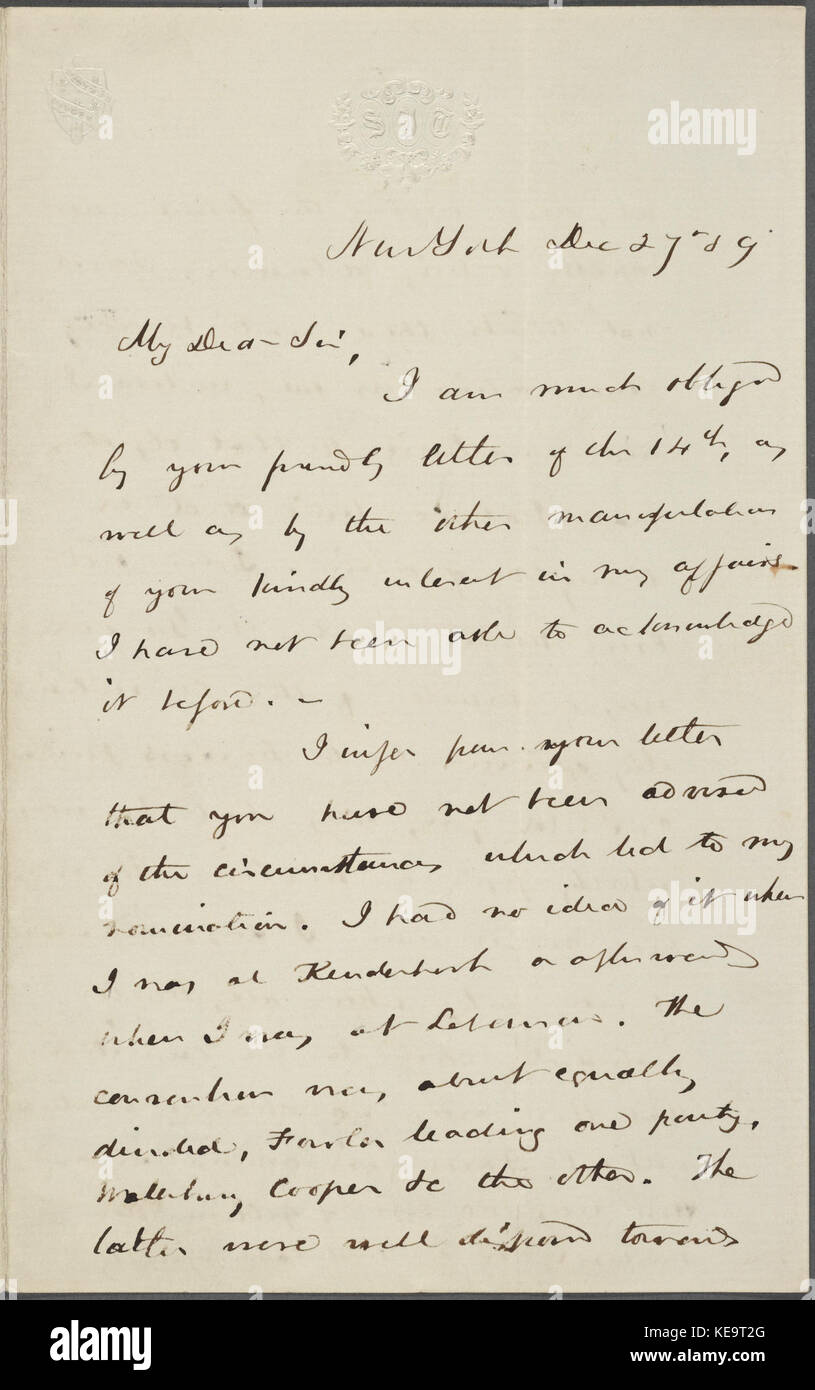 S J T
New York Dec 27 59
My Dear Sir,
I am much obliged
by your friendly letter of the 14th, as
well as by the other manifestations
of your kindly interest in my affairs.
I have not been able to acknowledge
it before. —
I infer from your letter
that you have not been advised
of the circumstances which led to my
nomination. I had no idea of it when
I was at Kinderhook or afterwards
when I was at Lebanon. The
convention was about equally
divided, Fowler leading one party,
Waterbury Cooper &c the other. The
latter were well disposed towards
alamy
alamy
a
a
a
alamy
Image ID: KE9T2G
www.alamy.com